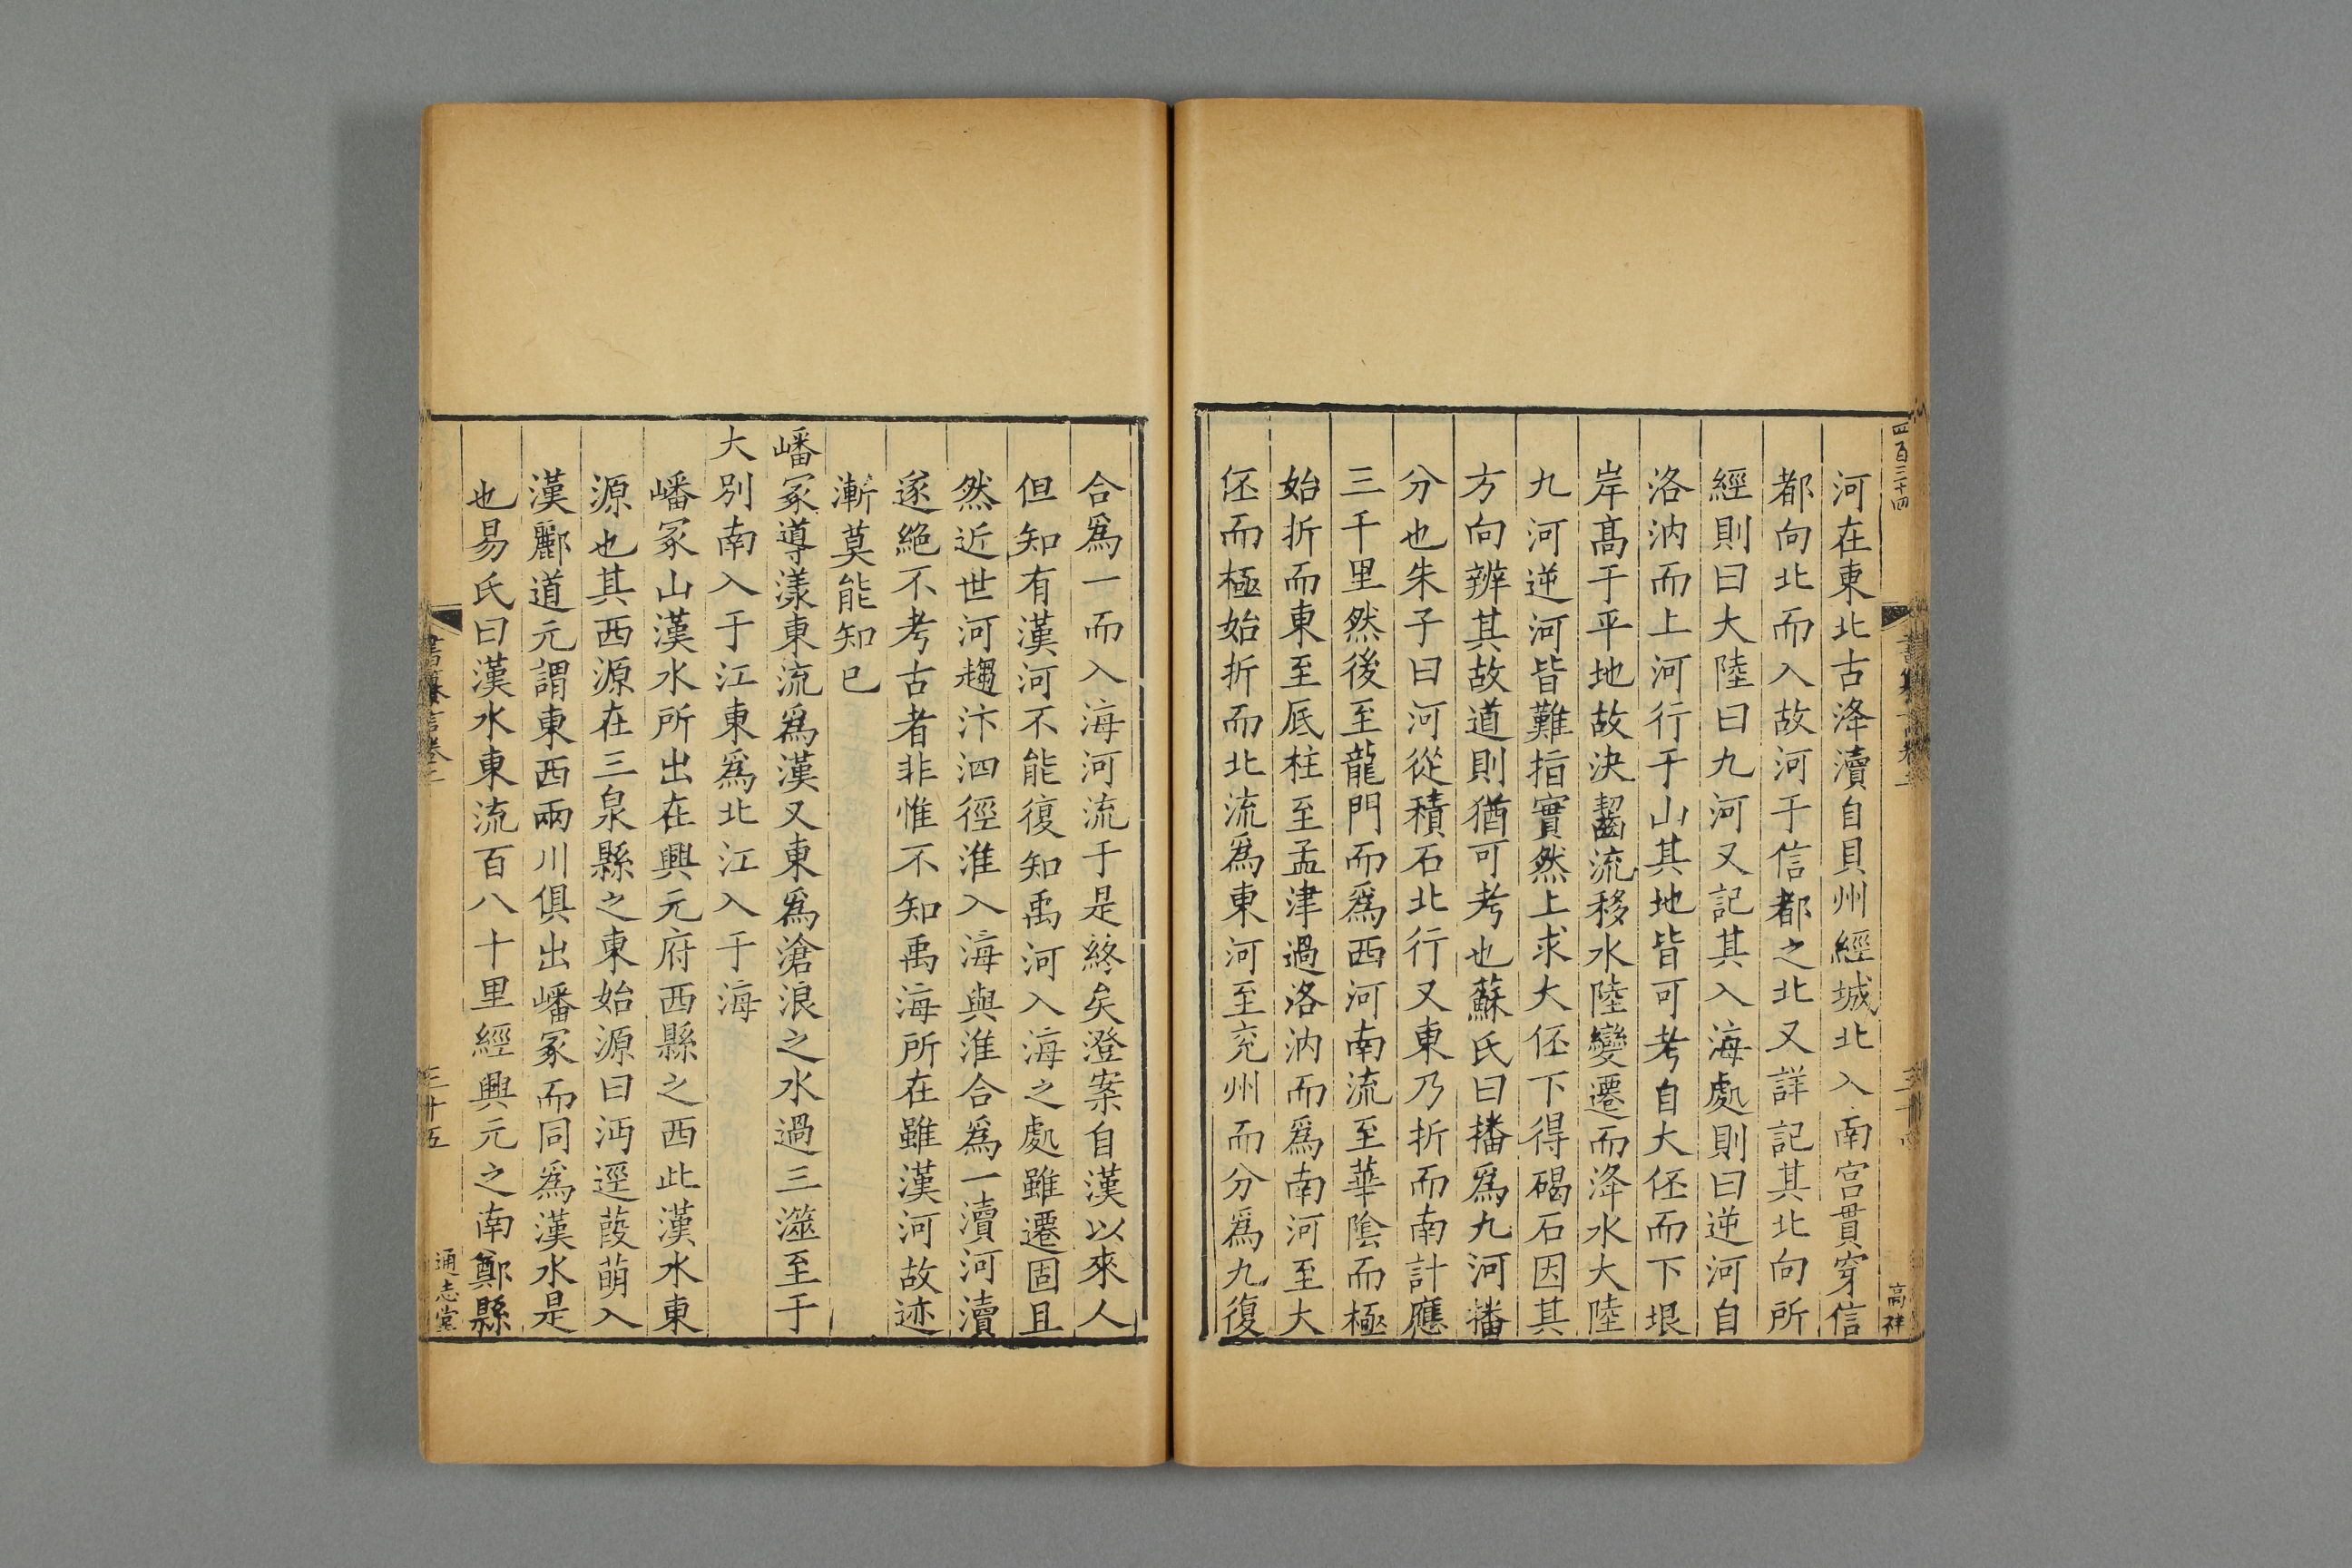 四百三十四
高祥
河在東北古洚瀆自貝州經城北入南宮貫穿信
都向北而入故河于信都之北又詳記其北向所
經則曰大陸曰九河又記其入海處則曰逆河自
洛汭而上河行于山其地皆可考自大伾而下垠
岸髙于平地故決齧流移水陸變遷而洚水大陸
九河逆河皆難指實然上求大伾下得碣石因其
方向辨其故道則猶可考也蘇氏曰播爲九河播
分也朱子曰河從積石北行又東乃折而南計應
三千里然後至龍門而爲西河南流至華陰而極
始折而東至厎柱至孟津過洛汭而爲南河至大
伾而極始折而北流爲東河至兖州而分爲九復
合爲一而入海河流于是終矣澄案自漢以來人
但知有漢河不能復知禹河入海之處雖遷固且
然近世河趨汴泗徑淮入海與淮合爲一瀆河瀆
遂絶不考古者非惟不知禹海所在雖漢河故迹
漸莫能知已
嶓冢導漾東流爲漢又東爲滄浪之水過三澨至于
大別南入于江東爲北江入于海
嶓冢山漢水所出在興元府西縣之西此漢水東
源也其西源在三泉縣之東始源曰沔逕葭萌入
漢酈道元謂東西兩川俱出嶓冢而同爲漢水是
也易氏曰漢水東流百八十里經興元之南鄭縣
三十五
通志堂